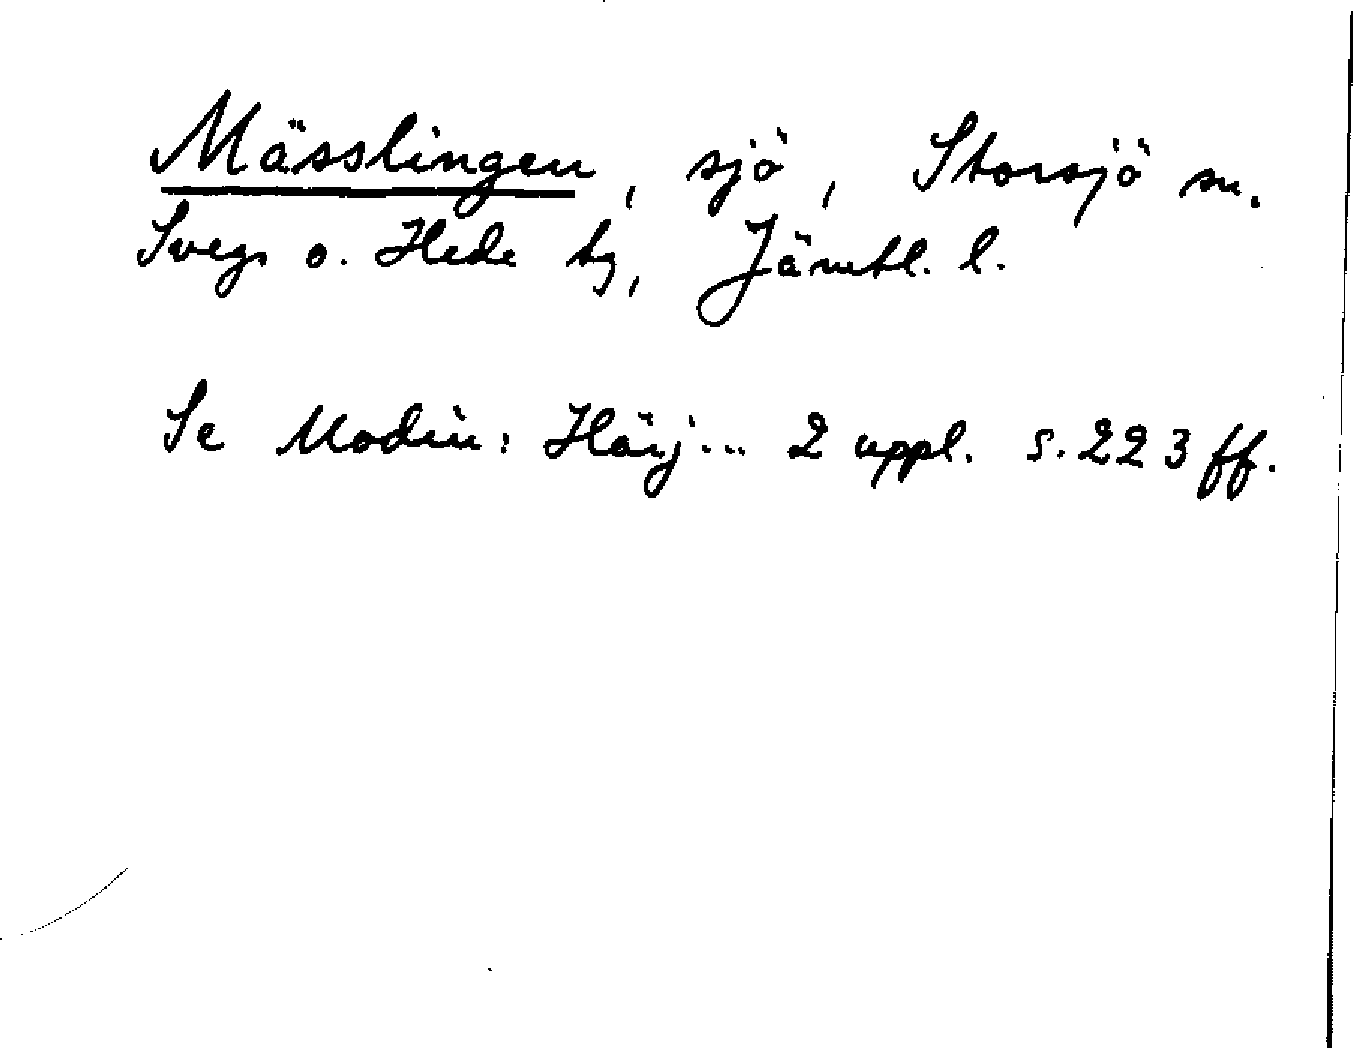 Mässlingen, sjö, Storsjö sn.
Svegs o. Hede tg, Jämtl. l.
Se Modin: Härj... 2 uppl. s. 223 ff.